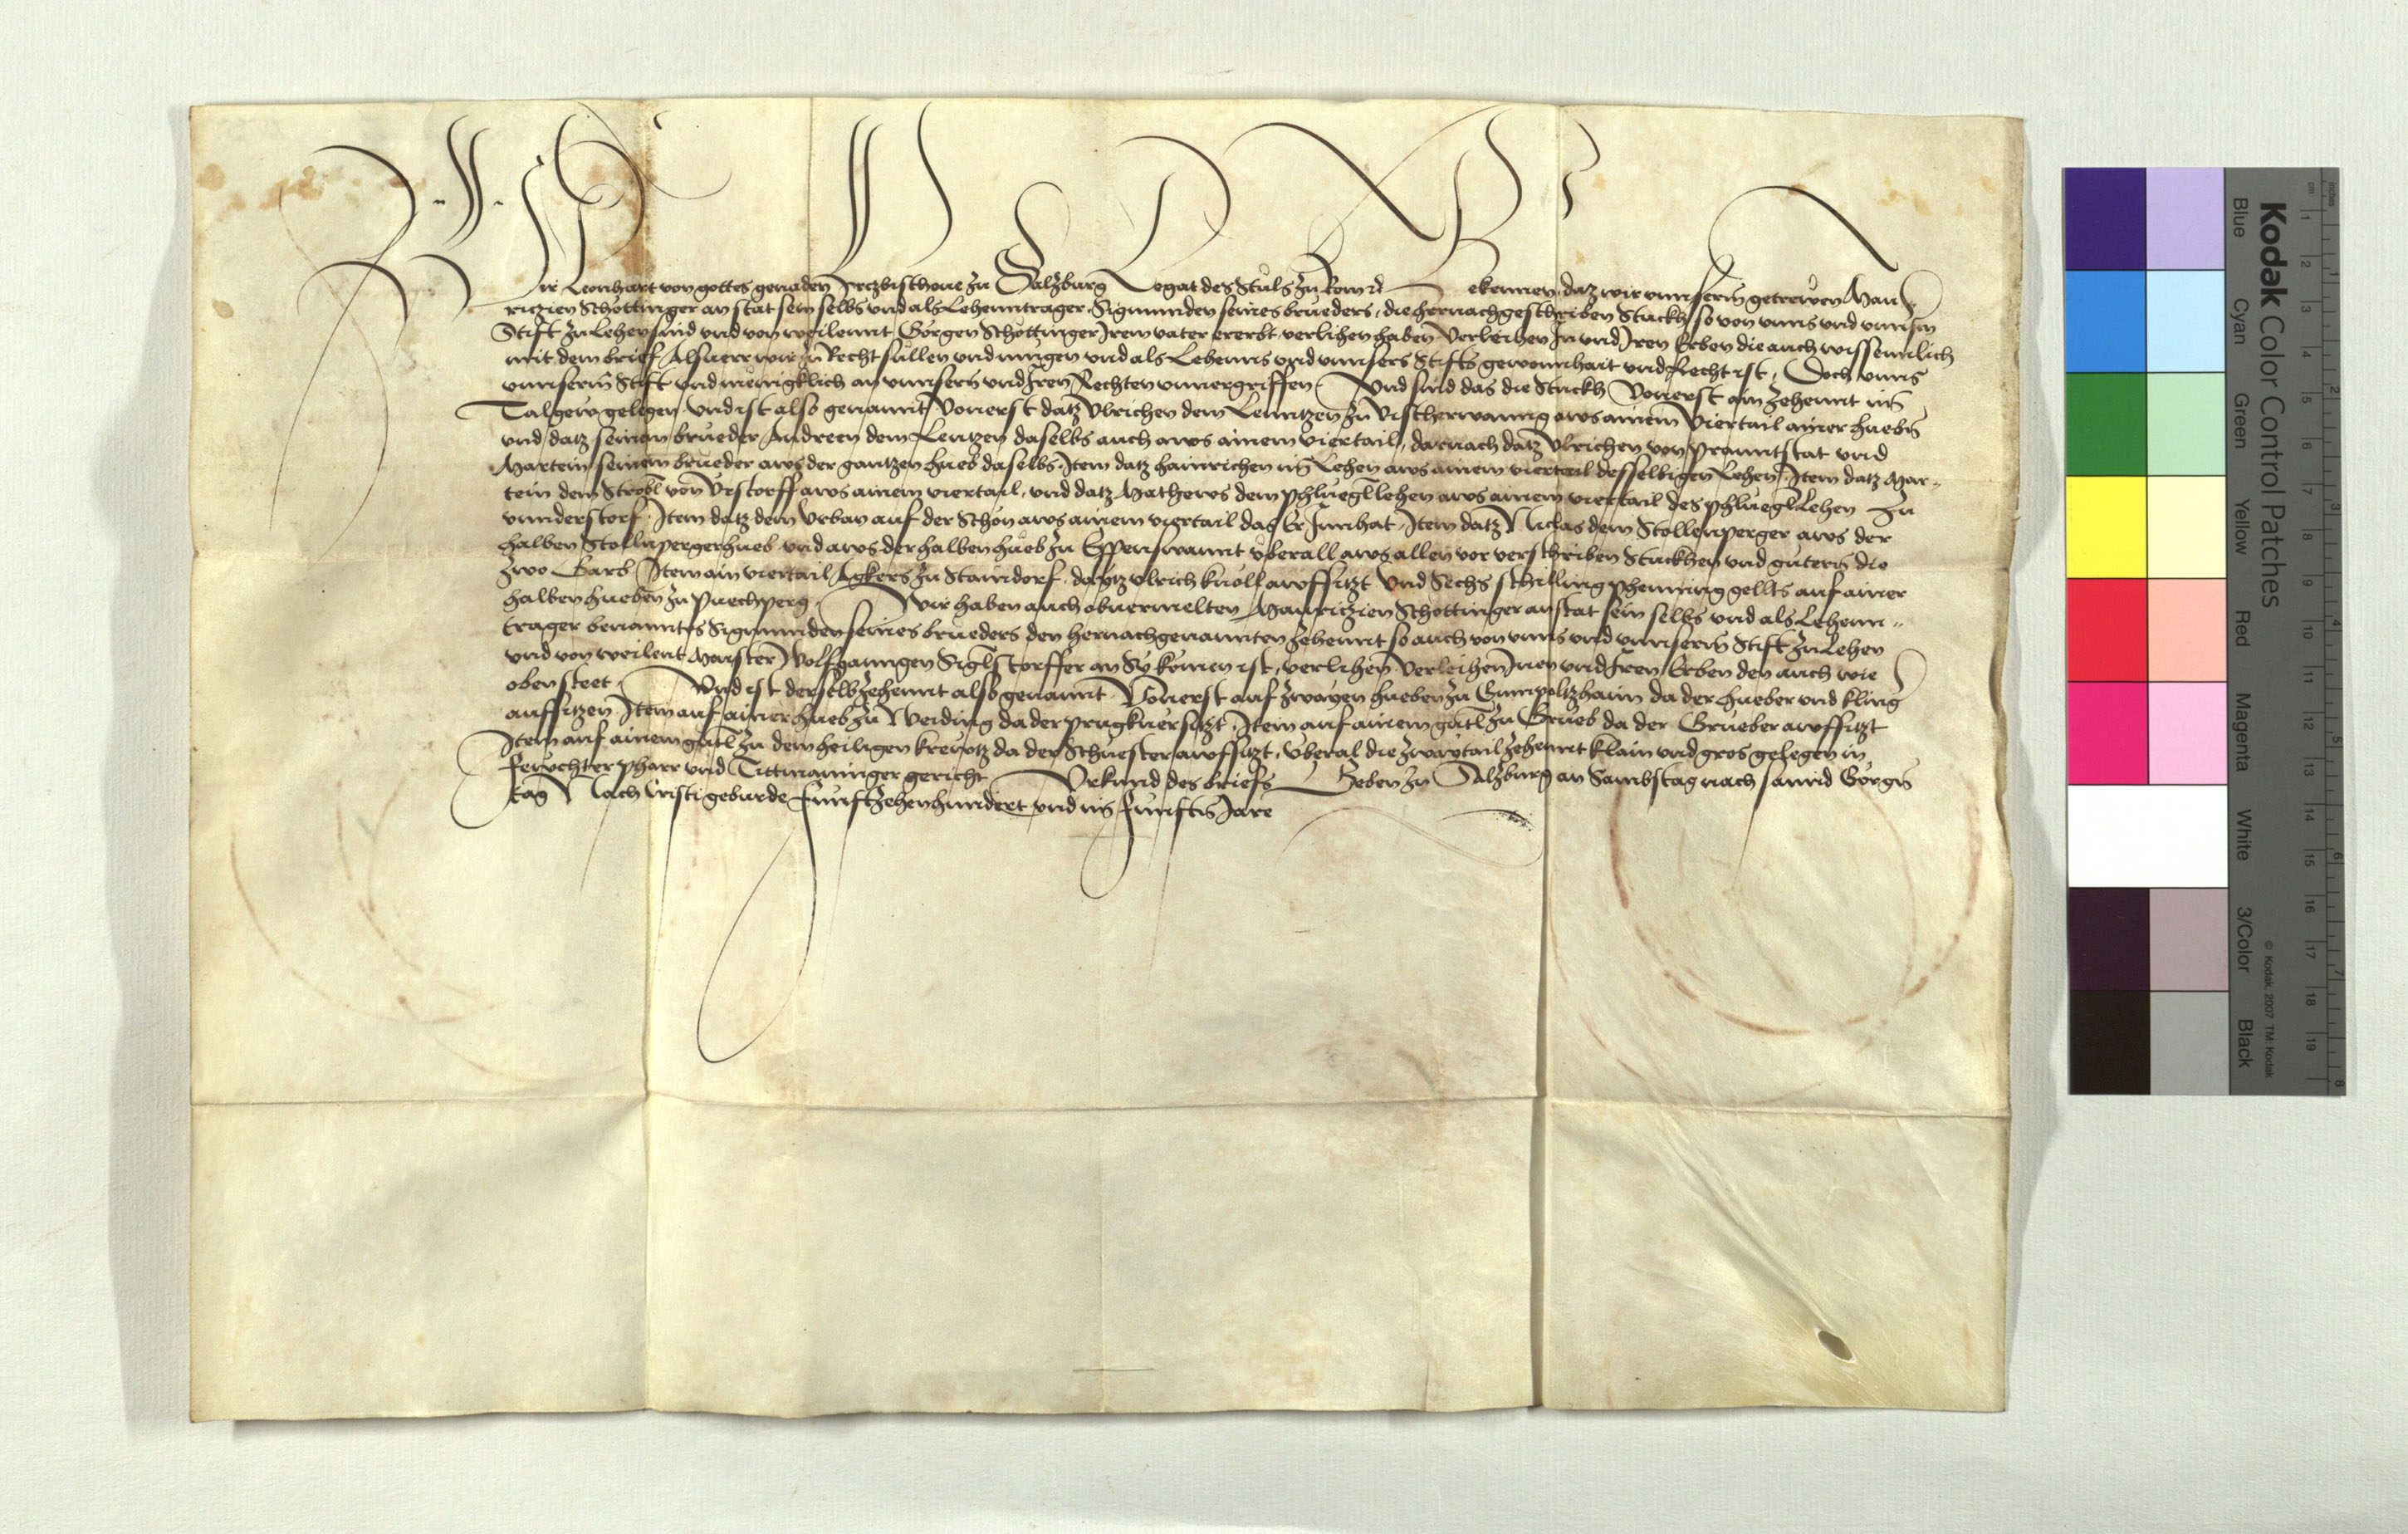 Wir Leonhart von gottes genaden Ertzbischoue zu Saltzburg Legat des Stuls zu Rom etc Bekennen daz wir vnnserm getrewen Mau
ritzien Schottinger an stat sein selbs vnd als Lehenntrager Sigmunden seines brueders, die hernachgeschriben Stuckh so von vnns vnd vnnserm
Stift zu Lehen sind vnd von weilennt Görgen Schöttinger Irem vater ererbt verlihen haben Verleihen In vnd Iren Erben die auch wissenntlich
mit dem brief Alsuerr wir zu Recht sullen vnd mugen vnd als Lehenns vnd vnnsers Stifts gewonnhait vnd Recht ist, Doch vnns
vnnserm Stift vnd menigklich an vnnsern vnd Iren Rechten vnuergriffen Vnd sind das die Stuckh Vonerst ain zehennt im
Talgew gelegen Vnd ist also genannt Vonerst datz Vlrichen dem Lenntzen zu Vischerwanng aws ainem Viertail ainer huebn
vnd datz seinem brueder Andreen dem Lentzen daselbs auch aws ainem viertail, darnach datz Vlrichen von Pranntstat vnd
Martein seinem brueder aws der gantzen hueb daselbs, Item datz hainrichen im Lehen aws ainem viertail desselbigen Lehen, Item datz Mar
tein dem Strobl von Vrstorff aws ainem viertail, vnd datz Mathews dem phlueglLehen aws ainem viertail des phlueglLehen Zu
vnnderstorf, Item datz dem Vrban auf der Schön aws ainem viertail das Er Innhat, Item datz Niclas dem Stollenperger aws der
halben Stollnpergerhueb vnd aws der halben hueb zu Effenswannt vberall aws allen vor verschriben Stuckhen vnd gutern die
zwo Garb Item ain viertail Agkers zu Staindorf, da ytz vlrich knoll awffsitzt Vnd Sechs schilling phenning gellts auf ainer
halben hueben zu Puechperg Wir haben auch obuermelten Mauritzien Schottinger an stat sein selbs vnd als Lehenn
trager benanntes Sigmunden seines brueders den hernachgenannten zehennt so auch von vnns vnd vnnserm Stift zu Lehen
vnd von weilent Maister Wolfganngen Siglstorffer an Sy komen ist, verlihen Verleihen Inen vnd Iren Erben den auch wie
oben steet, Vnd ist derselb zehennt also genannt Vonerst auf zwayen hueben zu Gumpoltzhaim da der hueber vnd kling
auffsitzen Item auf ainer hueb zu Weiding da der prugkner sitzt, Item auf ainem gütl zu Grueb da der Grueber awffsitzt
Item auf ainem gütl zu dem heiligen kreutz da der Schuester awffsitzt, vberal die zwaytail zehennt klain vnd gros gelegen in
feuchter pharr vnd Tittmaninger gericht Vrkund des briefs Geben zu Saltzburg an Sambstag nach sannd Görgn
tag Nach Cristi geburde fünfftzehenhundert vnd im fünften Jare
Kodak Color Control Patches
Blue Cyan Green Yellow Red Magenta White 3/Color Black
© Kodak, 2007 TM: Kodak
cm 1 2 3 4 5 6 7 8 9 10 11 12 13 14 15 16 17 18 19
inches 1 2 3 4 5 6 7 8